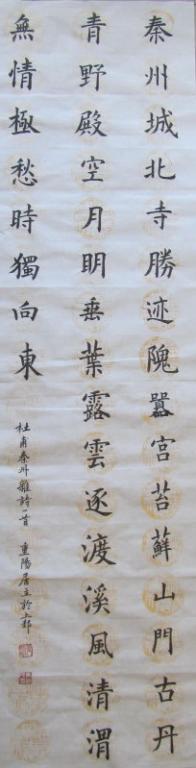 秦州城北寺勝迹隗囂宫苔蘚山門古丹
青野殿空月明垂葉露雲逐渡溪風清渭
無情極愁時獨向東
杜甫秦州雜詩一首 重陽居主於